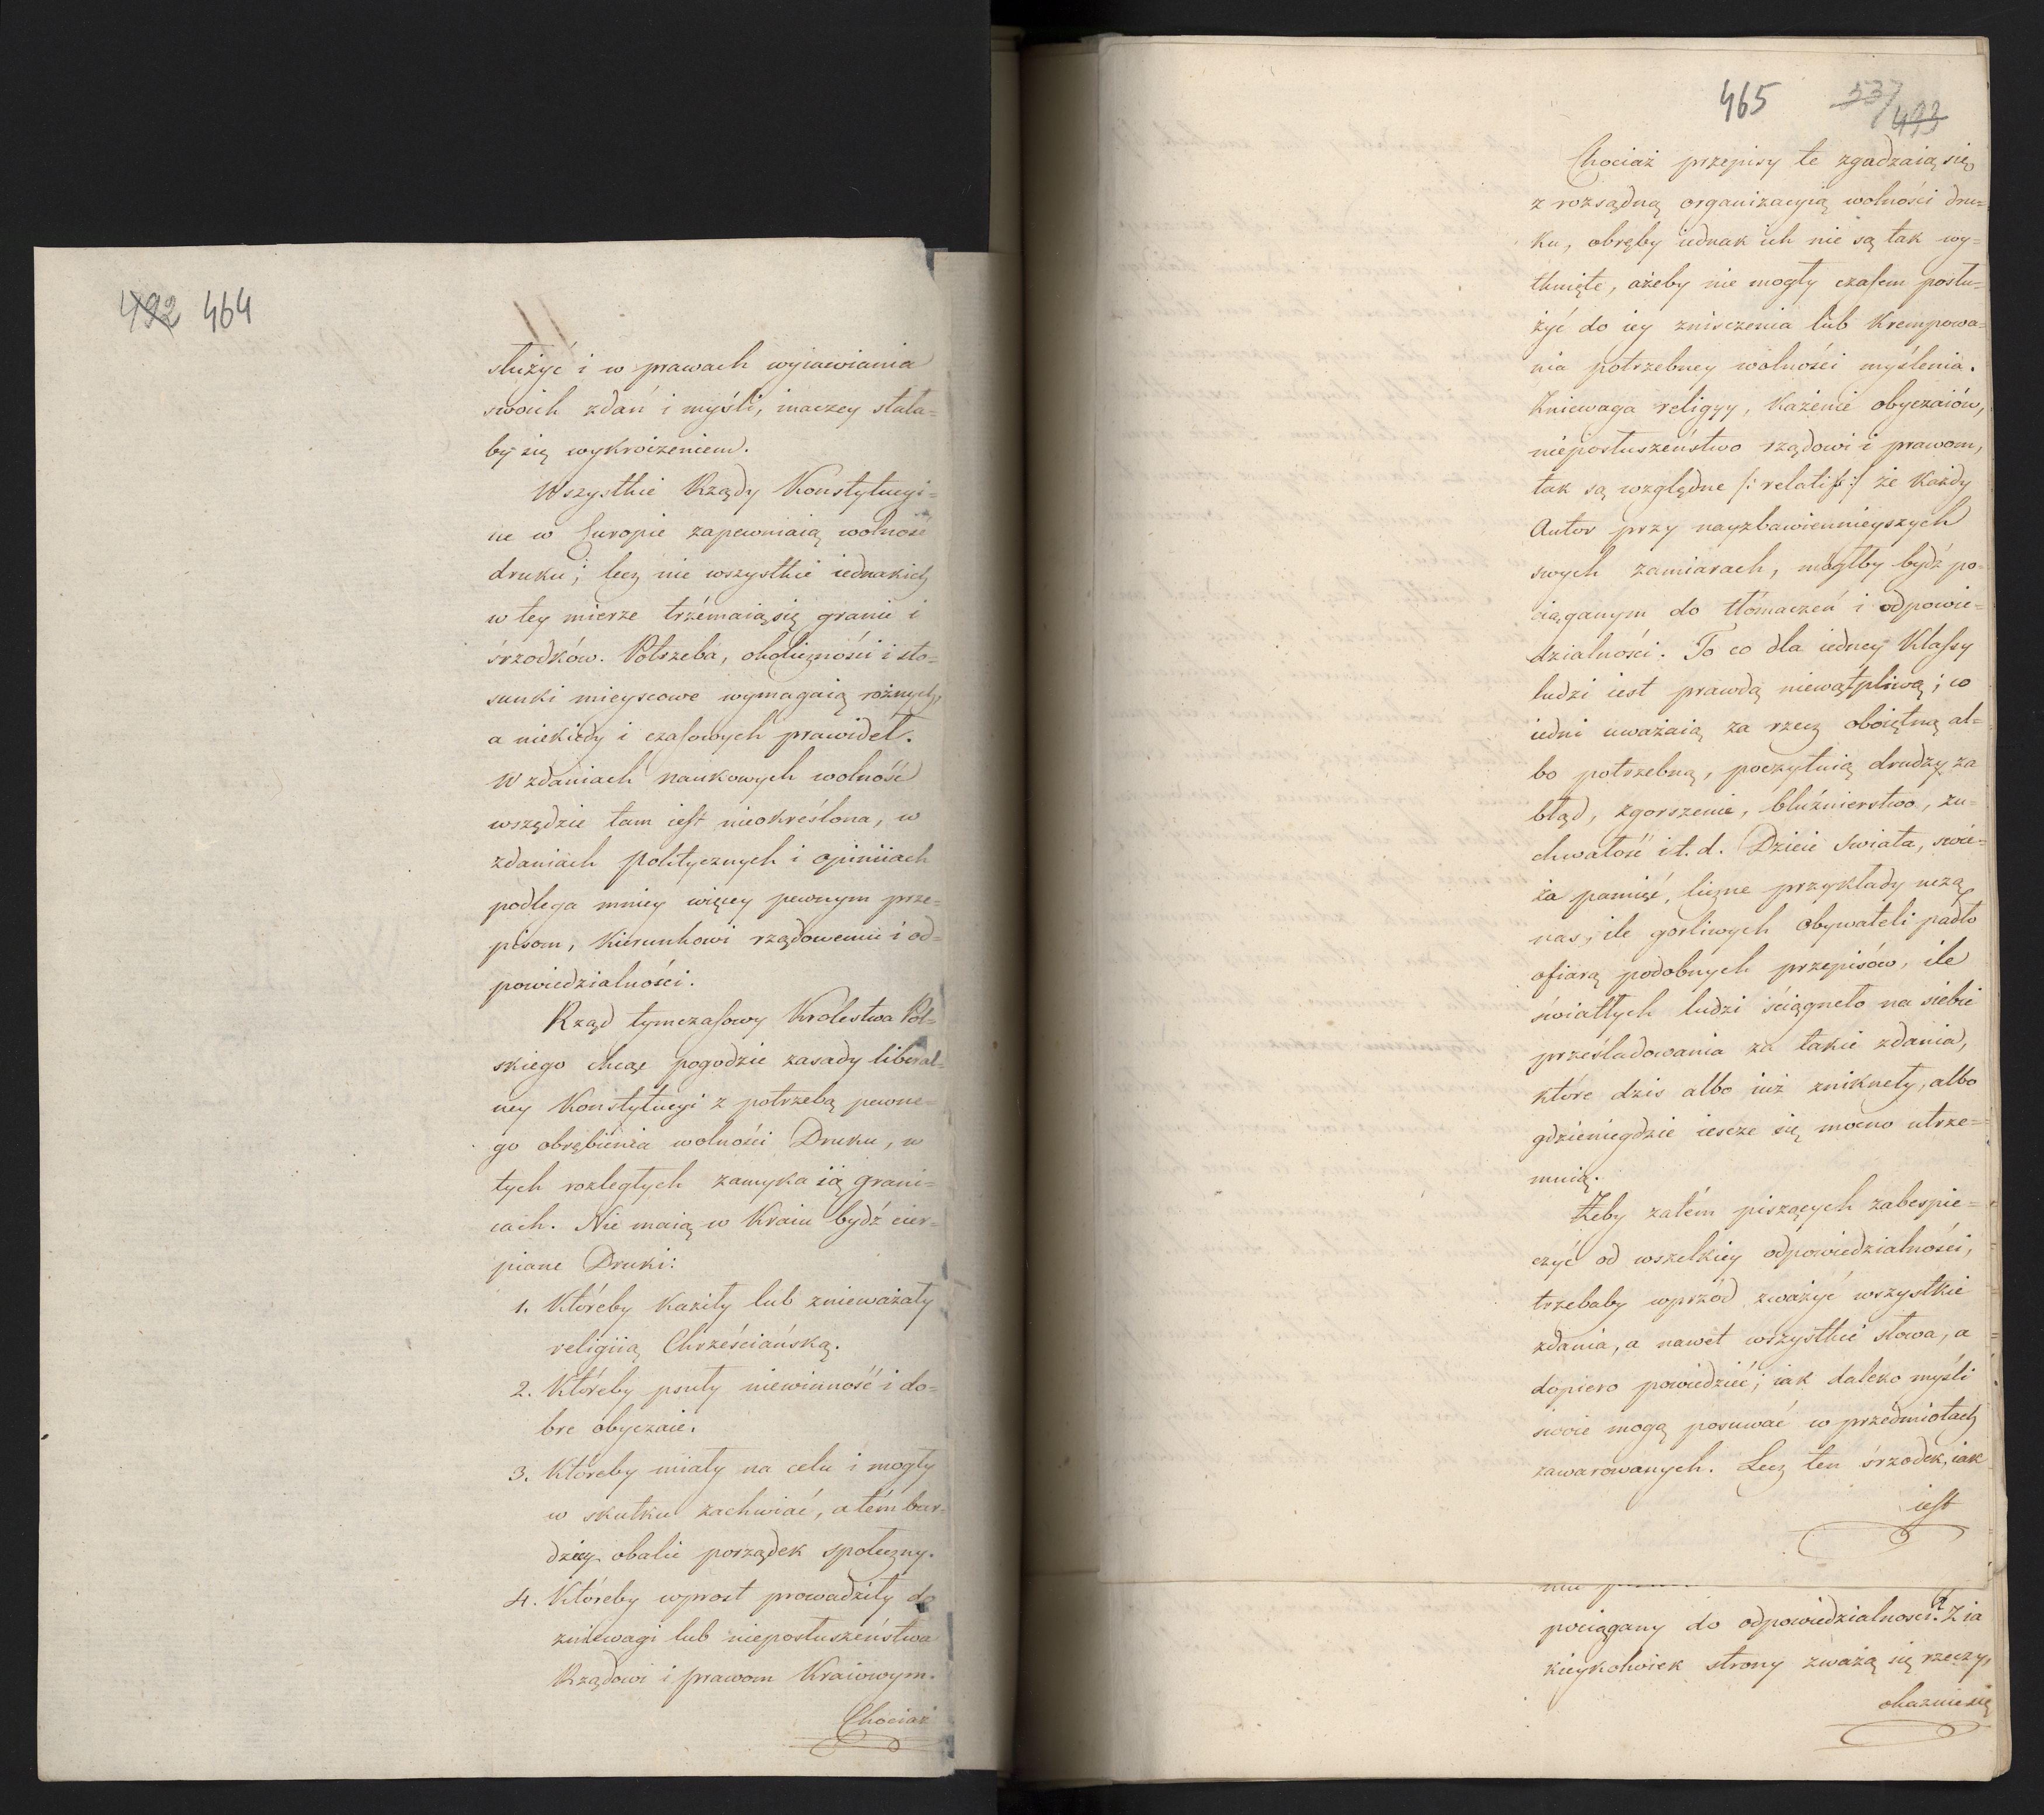 492 464
służyć i w prawach wyiawiania
swoich zdań i myśli, inaczey stała=
by się wykroczeniem.
Wszystkie Rządy Konstytucyi=
ne w Europie zapewniaią wolność
druku; lecz nie wszystkie iednakich
w tey mierze trzémaią się granic i
śrzodków. Potrzeba, okoliczności i sto=
sunki mieyscowe wymagaią rożnych,
a niekiedy i czasowych prawideł.
W zdaniach naukowych wolność
wszędzie tam iest nieokreślona, w
zdaniach politycznych i opiniiach
podlega mniey więcey pewnym prze=
pisom, kierunkowi rządowemu i od=
powiedzialności.
Rząd tymczasowy Królestwa Pol=
skiego chcąc pogodzic zasady liberal=
ney Konstytucyi z potrzebą pewne=
go obrębienia wolności Druku, w
tych rozległych zamyka ią grani=
cach. Nie maią w Kraiu bydź cier=
piane Druki:
1. Któreby kaziły lub znieważały
religiią Chrześciańską.
2. Któreby psuły niewinność i do=
bre obyczaie.
3. Któreby miały na celu i mogły
w skutku zachwiać, a tém bar=
dziey obalic porządek społeczny.
4. Któreby wprost prowadziły do
zniewagi lub nieposłuszeństwa
Rządowi i prawom Kraiowym.
Chociaż
465 537/493
Chociaż przepisy te zgadzaią się
z rozsądną organizacyią wolności dru=
ku, obręby iednak ich nie są tak wy=
tknięte, ażeby nie mogły czasem posłu=
żyć do iey zniszczenia lub krempowa=
nia potrzebney wolności myślenia.
Zniewaga religyy, każenie obyczaiów,
nieposłuszeństwo rządowi i prawom,
tak są względne /: relatif :/ że każdy
Autor przy nayzbawiennieyszych
swych zamiarach, mógłby bydź po=
ciąganym do tłómaczeń i odpowie=
dzialności. To co dla iedney Klassy
ludzi iest prawdą niewątpliwą; co
iedni uważaią za rzecz oboiętną al=
bo potrzebną, poczytuią drudzy za
błąd, zgorszenie, bluźnierstwo, zu=
chwałość i t. d. Dzieie świata, świe=
ża pamięć, liczne przykłady uczą
nas, ile gorliwych obywateli padło
ofiarą podobnych przepisów, ile
światłych ludzi ściągneło na siebie
prześladowania za takie zdania,
które dzis albo iuż znikneły, albo
gdzieniegdzie iescze się mocno utrze=
muią.
Żeby zatém piszących zabespie=
czyć od wszelkiey odpowiedzialności,
trzebaby wprzód zważyć wszystkie
zdania, a nawet wszystkie słowa, a
dopiero powiedzieć, iak daleko myśli
swoie mogą posuwać w przedmiotach
zawarowanych. Lecz ten śrzodek, iak
iest
pociągany do odpowiedzialności? Z ia
kieykolwiek strony zważą się rzeczy,
okazuie się